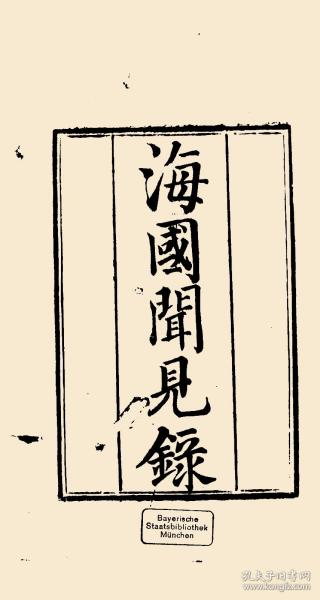 海國聞見錄
Bayerische
Staatsbibliothek
München
孔夫子旧书网
www.kongfz.com